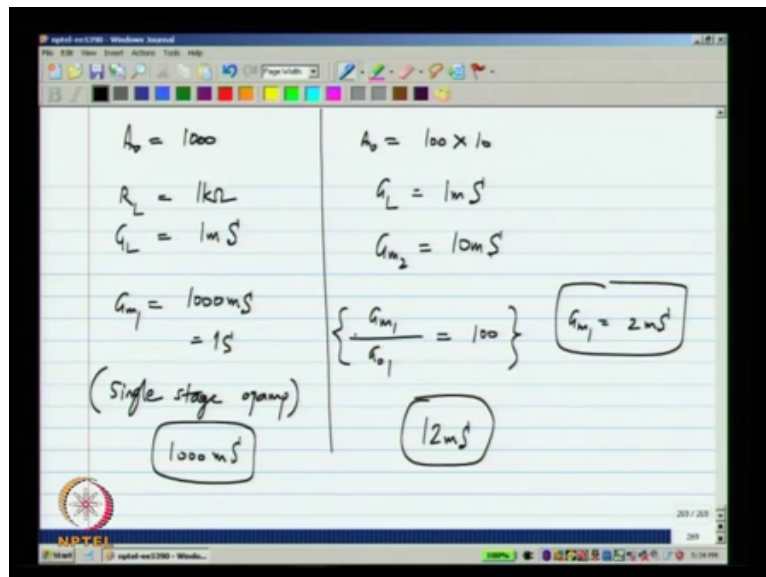 nptel-ee5390 - Windows Journal
File Edit View Insert Actions Tools Help
Page Width
B I
A₀ = 1000
R_L = 1kΩ
G_L = 1mS
G_m₁ = 1000mS
= 1S
(Single stage opamp)
1000 mS
A₀ = 100 × 10
G_L = 1mS
G_m₂ = 10mS
{ G_m₁ / G_o₁ = 100 }
G_m₁ = 2mS
12mS
NPTEL
269
Start
nptel-ee5390 - Windo...
100%
5:24 PM